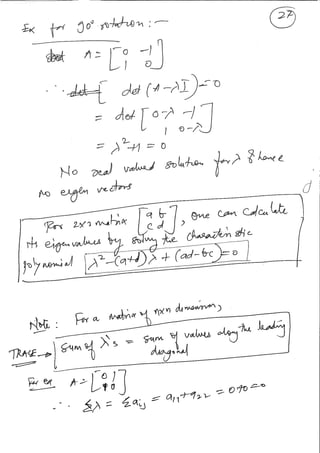 27
Ex for 90° rotation :-
A = [0 -1
1 0]
∴ det (A - λI) = 0
= det [0-λ -1
1 0-λ]
= λ²+1 = 0
No real valued solution for λ & hence
no eigen vectors
For 2x2 matrix [a b
c d], one can calculate
its eigenvalues by solving the characteristic
polynomial λ² - (a+d)λ + (ad-bc) = 0
Note : For a matrix of nxn dimensions,
TRACE → Sum of λ's = Sum of values along the leading
diagonal
For eg. A = [0 1
1 0]
∴ Σλ = Σaij = a11 + a22 = 0+0 = 0